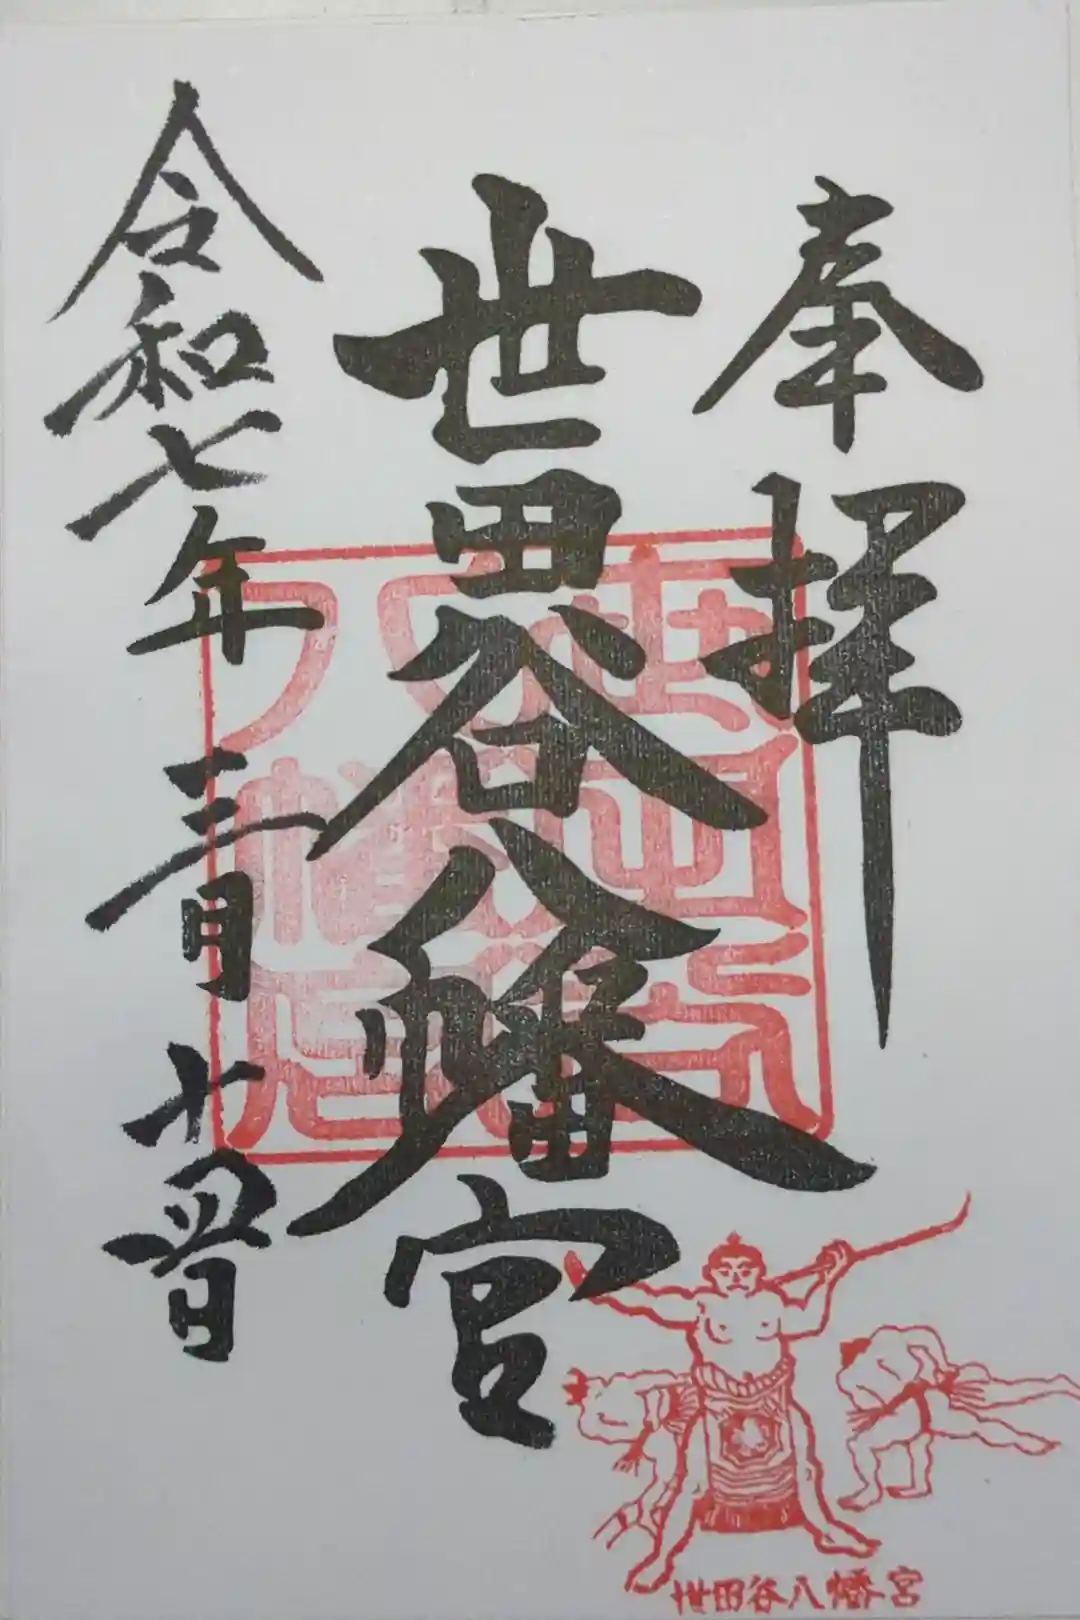 奉拝
世田谷八幡宮
世田谷八幡宮
令和七年三月十四日
世田谷八幡宮